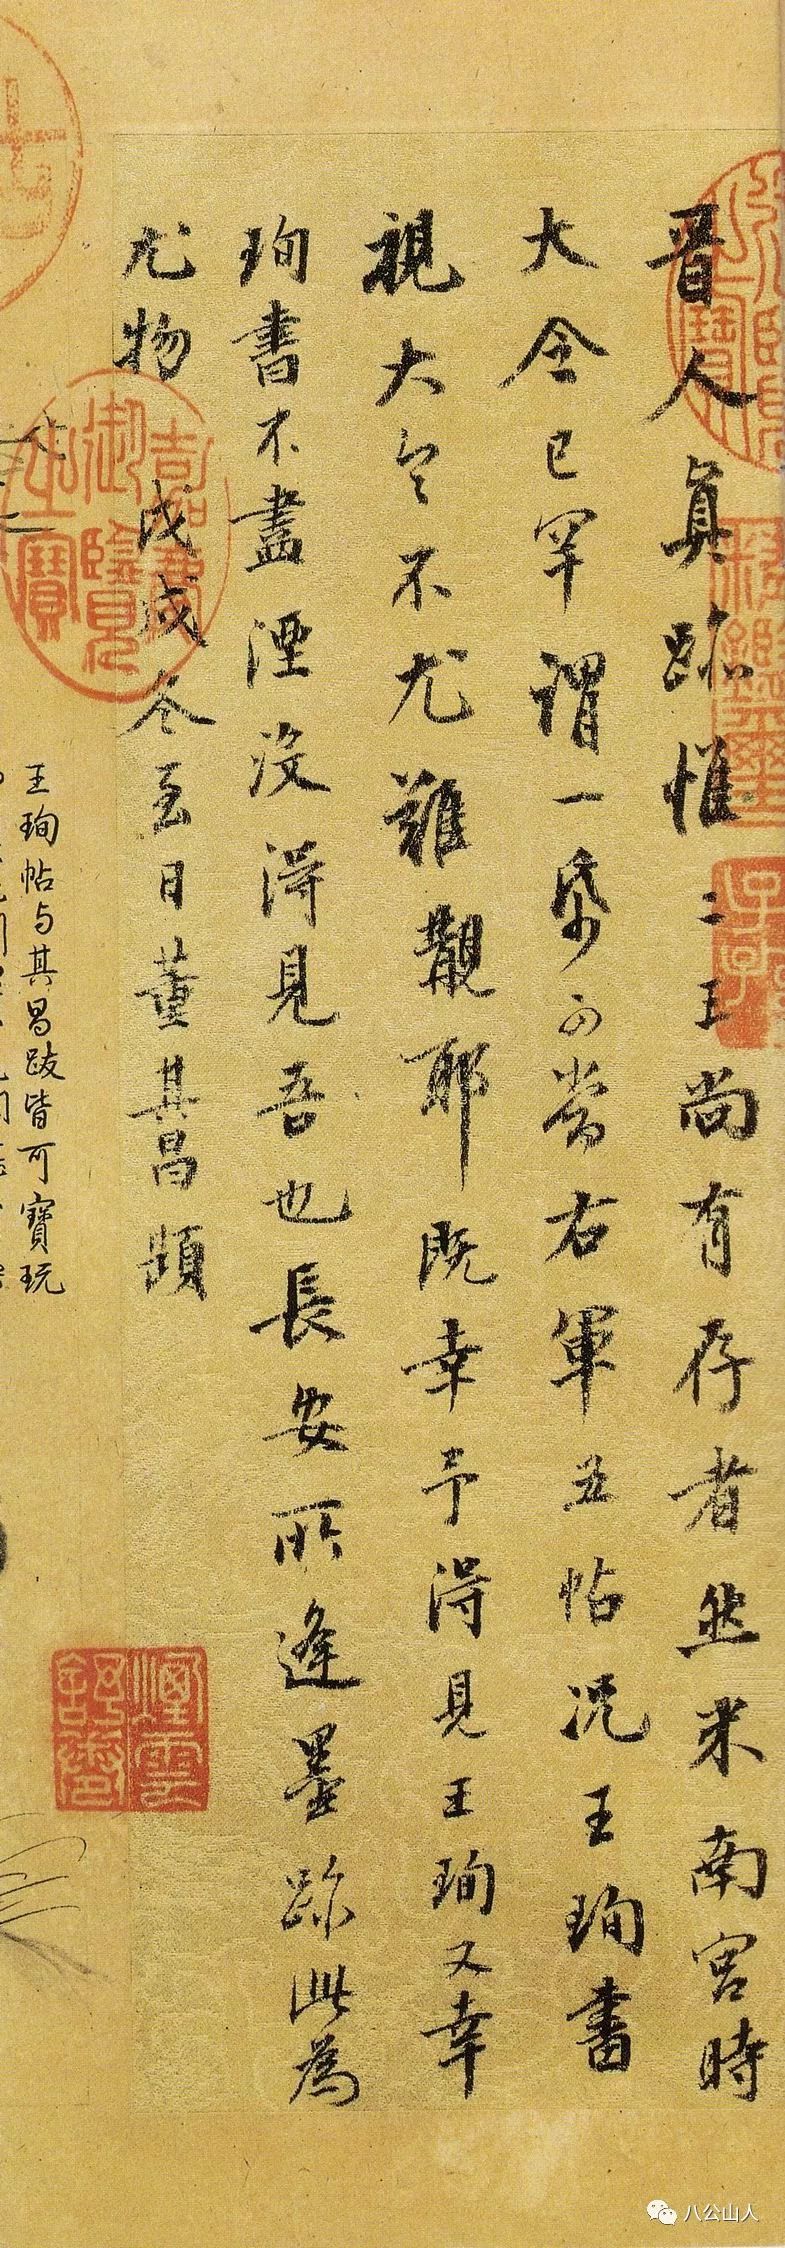 晉人真跡惟二王尚有存者然米南宮時
大令已罕謂一帋可當右軍五帖況王珣書
視大令不尤難覯耶既幸予得見王珣又幸
珣書不盡湮沒得見吾也長安所逢墨跡此為
尤物 戊戌冬至日董其昌題
嘉慶御覽之寶
王珣帖与其昌跋皆可寶玩
八公山人